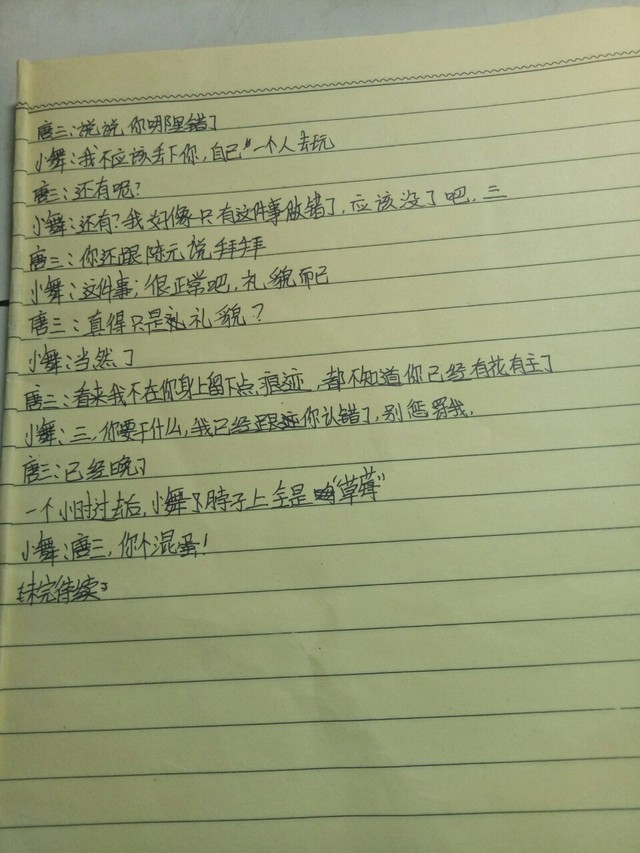 唐三:说说你哪里错了
小舞:我不应该丢下你,自己一个人去玩
唐三:还有呢?
小舞:还有?我好像只有这件事做错了,应该没了吧,三
唐三:你还跟陈元说拜拜
小舞:这件事;很正常吧,礼貌而已
唐三:真得只是礼礼貌?
小舞:当然了
唐三:看来我不在你身上留下点痕迹,都不知道你已经有花有主了
小舞:三,你要干什么,我已经跟你认错了,别惩罚我.
唐三:已经晚了
一个小时过去后,小舞脖子上全是"草莓"
小舞:唐三,你个混蛋!
未完待续